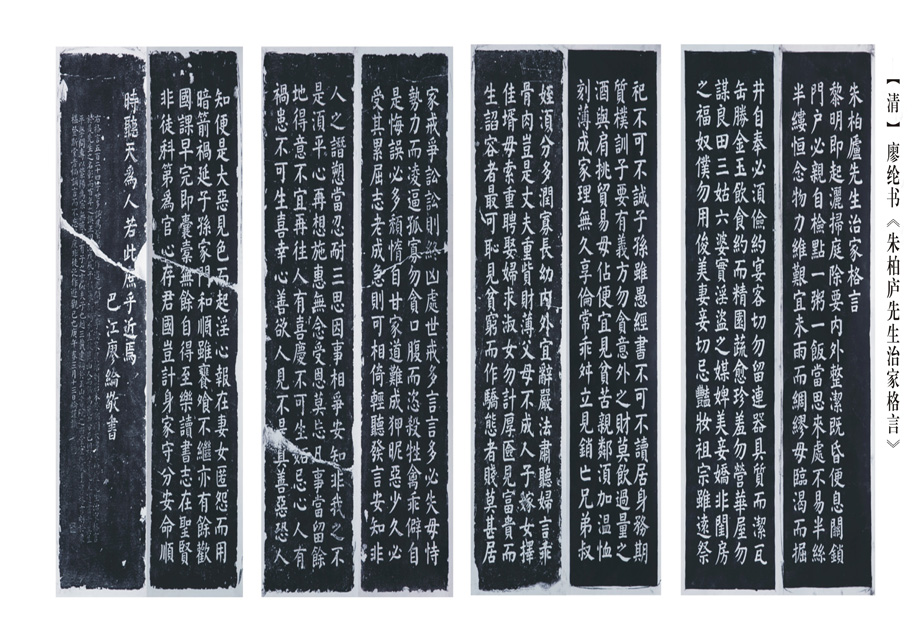 【清】廖纶书《朱柏庐先生治家格言》
朱柏廬先生治家格言
黎明即起灑掃庭除要內外整潔既昏便息關鎖
門户必親自檢點一粥一飯當思來處不易半絲
半縷恒念物力維艱宜未雨而綢繆毋臨渴而掘
井自奉必須儉約宴客切勿留連器具質而潔瓦
缶勝金玉飲食約而精園蔬愈珍羞勿營華屋勿
謀良田三姑六婆實淫盜之媒婢美妾嬌非閨房
之福奴僕勿用俊美妻妾切忌豔妝祖宗雖遠祭
祀不可不誠子孫雖愚經書不可不讀居身務期
質樸訓子要有義方勿貪意外之財莫飲過量之
酒與肩挑貿易毋佔便宜見貧苦親鄰須加溫恤
刻薄成家理無久享倫常乖舛立見銷亡兄弟叔
姪須分多潤寡長幼內外宜辭嚴法肅聽婦言乖
骨肉豈是丈夫重貲財薄父母不成人子嫁女擇
佳壻毋索重聘娶婦求淑女勿計厚匳見富貴而
生諂容者最可恥見貧窮而作驕態者賤莫甚居
家戒爭訟訟則終凶處世戒多言言多必失毋恃
勢力而凌逼孤寡勿貪口腹而恣殺牲禽乖僻自
是悔誤必多頹惰自甘家道難成狎昵惡少久必
受其累屈志老成急則可相倚輕聽發言安知非
人之譖愬當忍耐三思因事相爭安知非我之不
是須平心再想施惠無念受恩莫忘凡事當留餘
地得意不宜再往人有喜慶不可生妒忌心人有
禍患不可生喜幸心善欲人見不是真善惡恐人
知便是大惡見色而起淫心報在妻女匿怨而用
暗箭禍延子孫家門和順雖饔飧不繼亦有餘歡
國課早完即囊橐無餘自得至樂讀書志在聖賢
非徒科第為官心存君國豈計身家守分安命順
時聽天為人若此庶乎近焉
巴江廖綸敬書